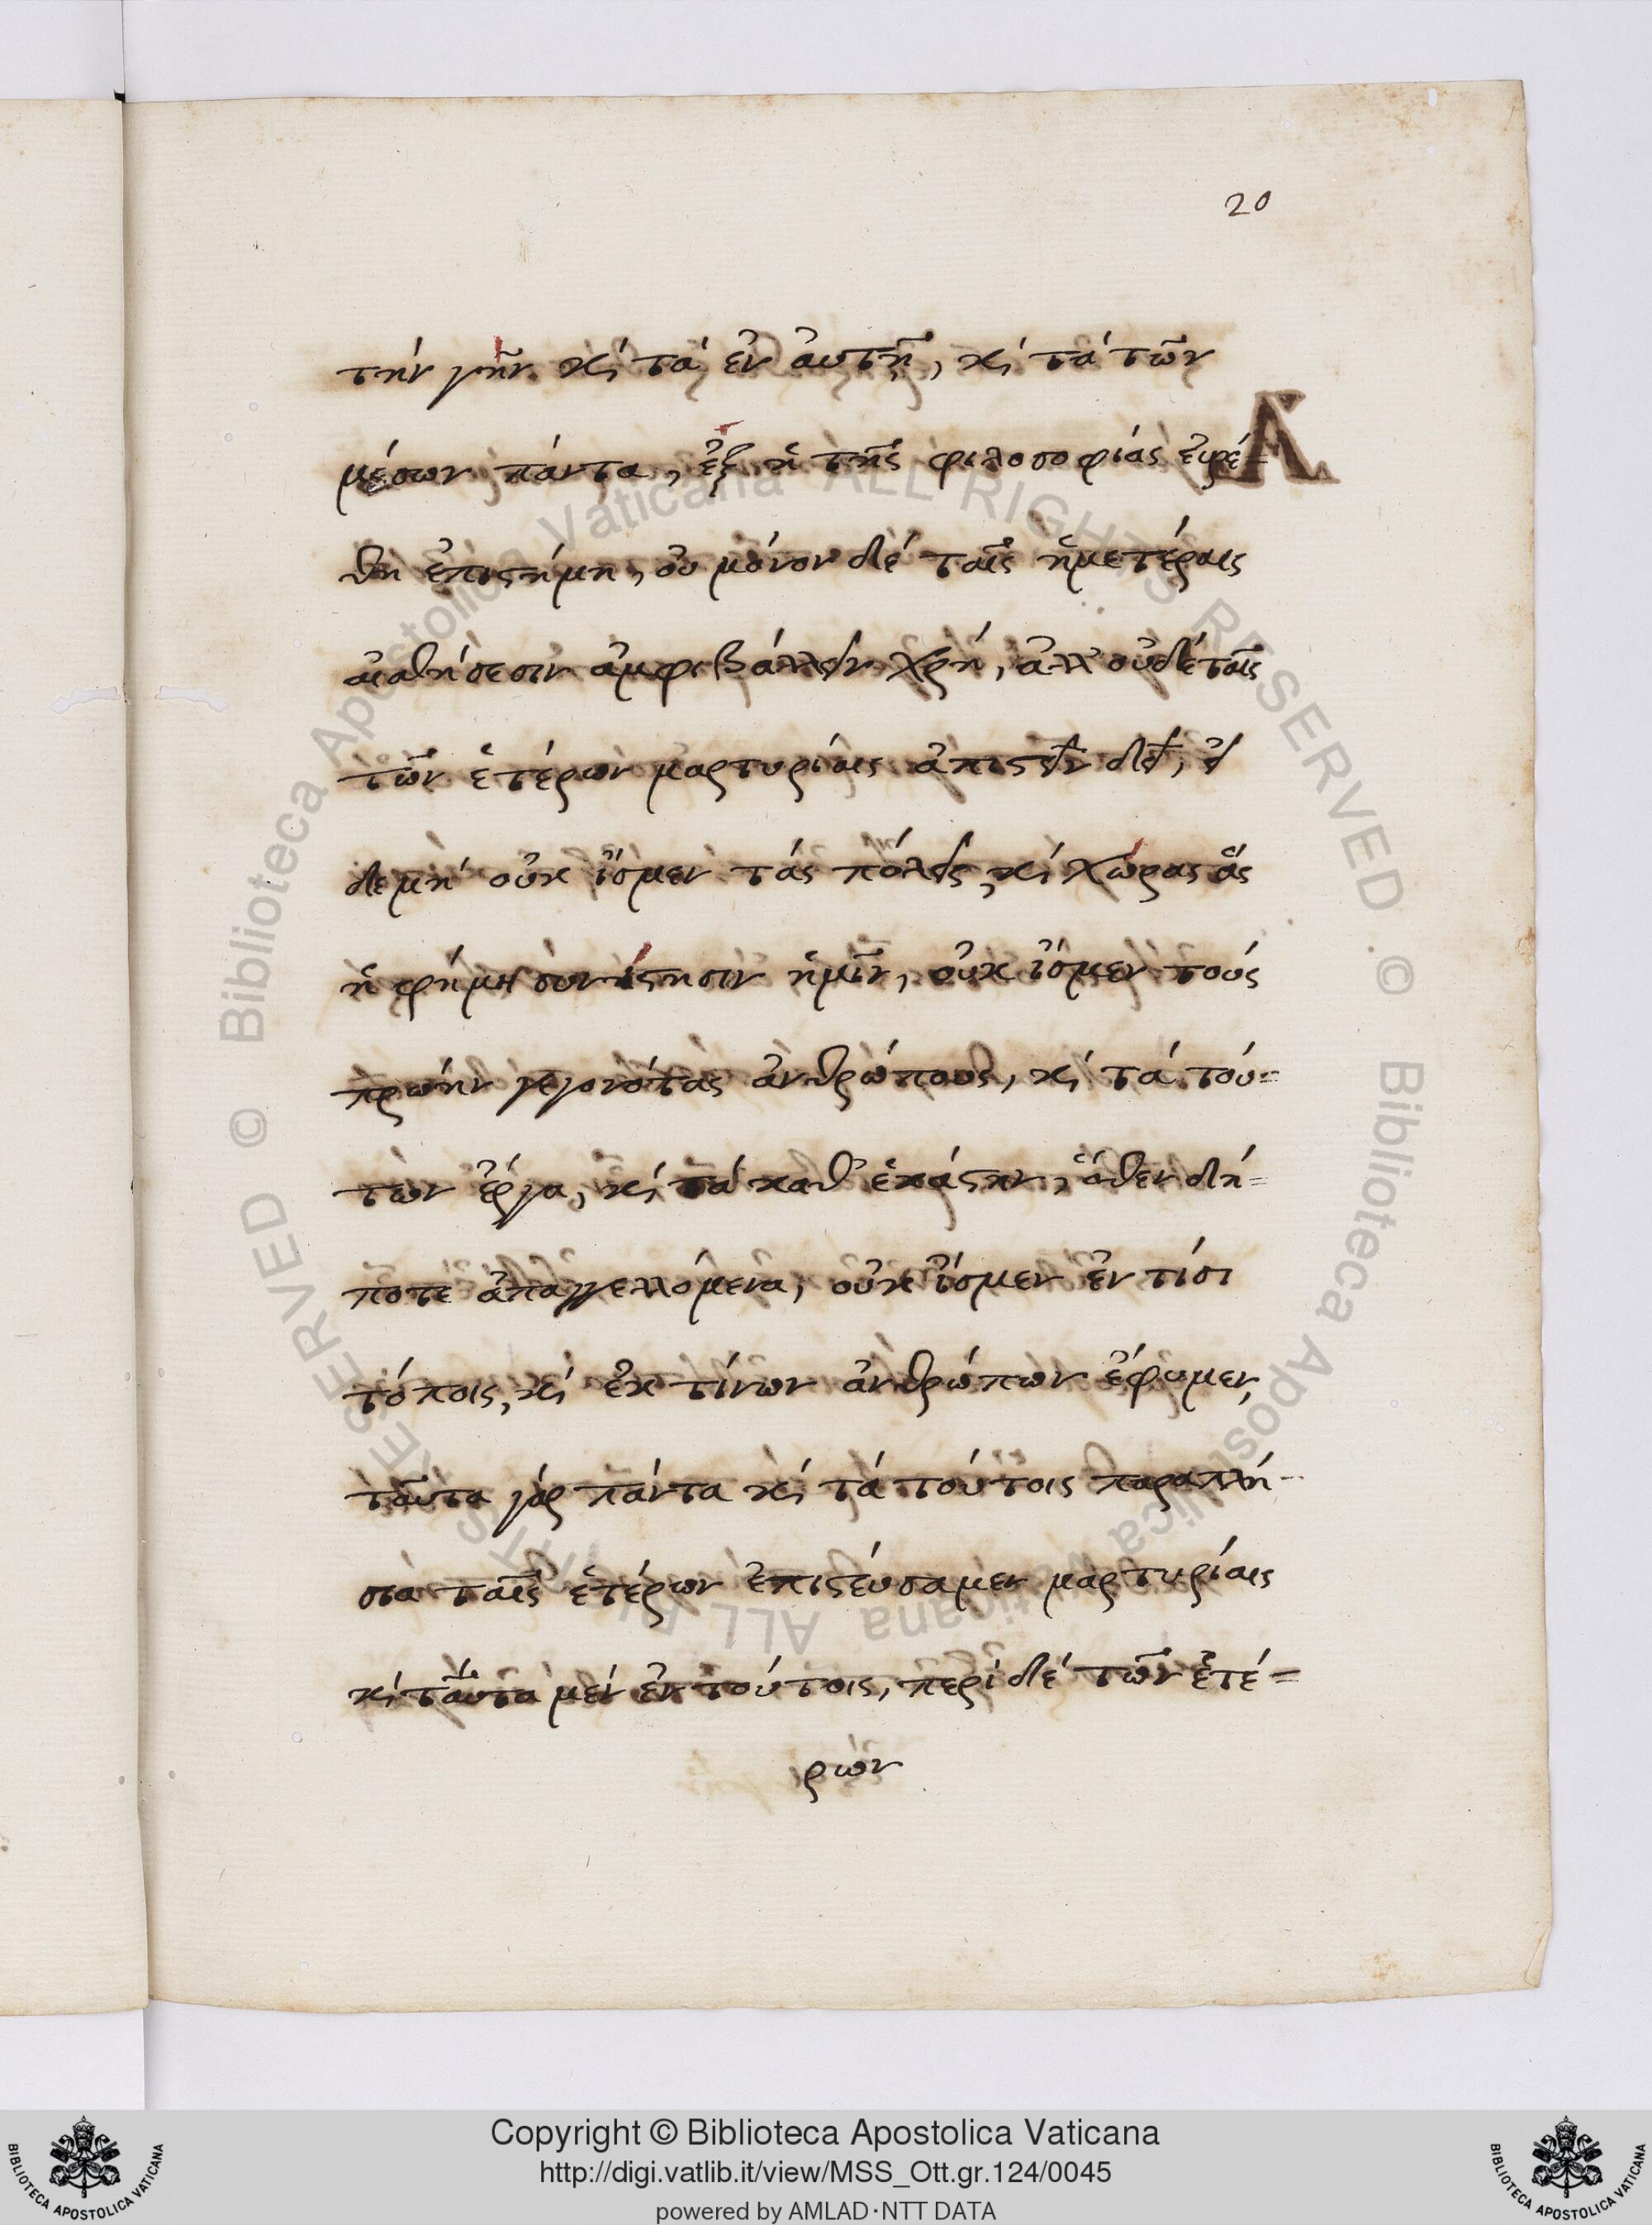 20
τὴν γῆν καὶ τὰ ἐν αὐτῇ, καὶ τὰ τῶν
μέσων πάντα, ἐξ ἡ τῆς φιλοσοφίας εὑρέ-
θη ἐπιστήμη, οὐ μόνον δὲ ταῖς ἡμετέραις
αἰσθήσεσιν ἀμφιβάλλειν χρή, ἀλλ' οὐδὲ ταῖς
τῶν ἑτέρων μαρτυρίαις ἀπιστεῖν δεῖ, εἰ
δεμὴ οὐκ ἴσμεν τὰς πόλεις, καὶ χώρας ἃς
ἡ φήμη συνίστησιν ἡμῖν, οὐκ ἴσμεν τοὺς
πρώην γεγονότας ἀνθρώπους, καὶ τὰ τού=
των ἔργα, καὶ τὰ καθ' ἑκάστην, ὅθεν δή=
ποτε ἀπαγγελλόμενα, οὐκ ἴσμεν ἐν τίσι
τόποις, καὶ ἐκ τίνων ἀνθρώπων ἔφυμεν,
ταῦτα γὰρ πάντα καὶ τὰ τούτοις παραπλή-
σια ταῖς ἑτέρων ἐπιστεύσαμεν μαρτυρίαις
καὶ ταῦτα μὲν ἐν τούτοις, περὶ δὲ τῶν ἑτέ=
ρων
Copyright © Biblioteca Apostolica Vaticana
http://digi.vatlib.it/view/MSS_Ott.gr.124/0045
powered by AMLAD·NTT DATA
BIBLIOTECA APOSTOLICA VATICANA
BIBLIOTECA APOSTOLICA VATICANA
© Biblioteca Apostolica Vaticana ALL RIGHTS RESERVED · © Biblioteca Apostolica Vaticana ALL RIGHTS RESERVED